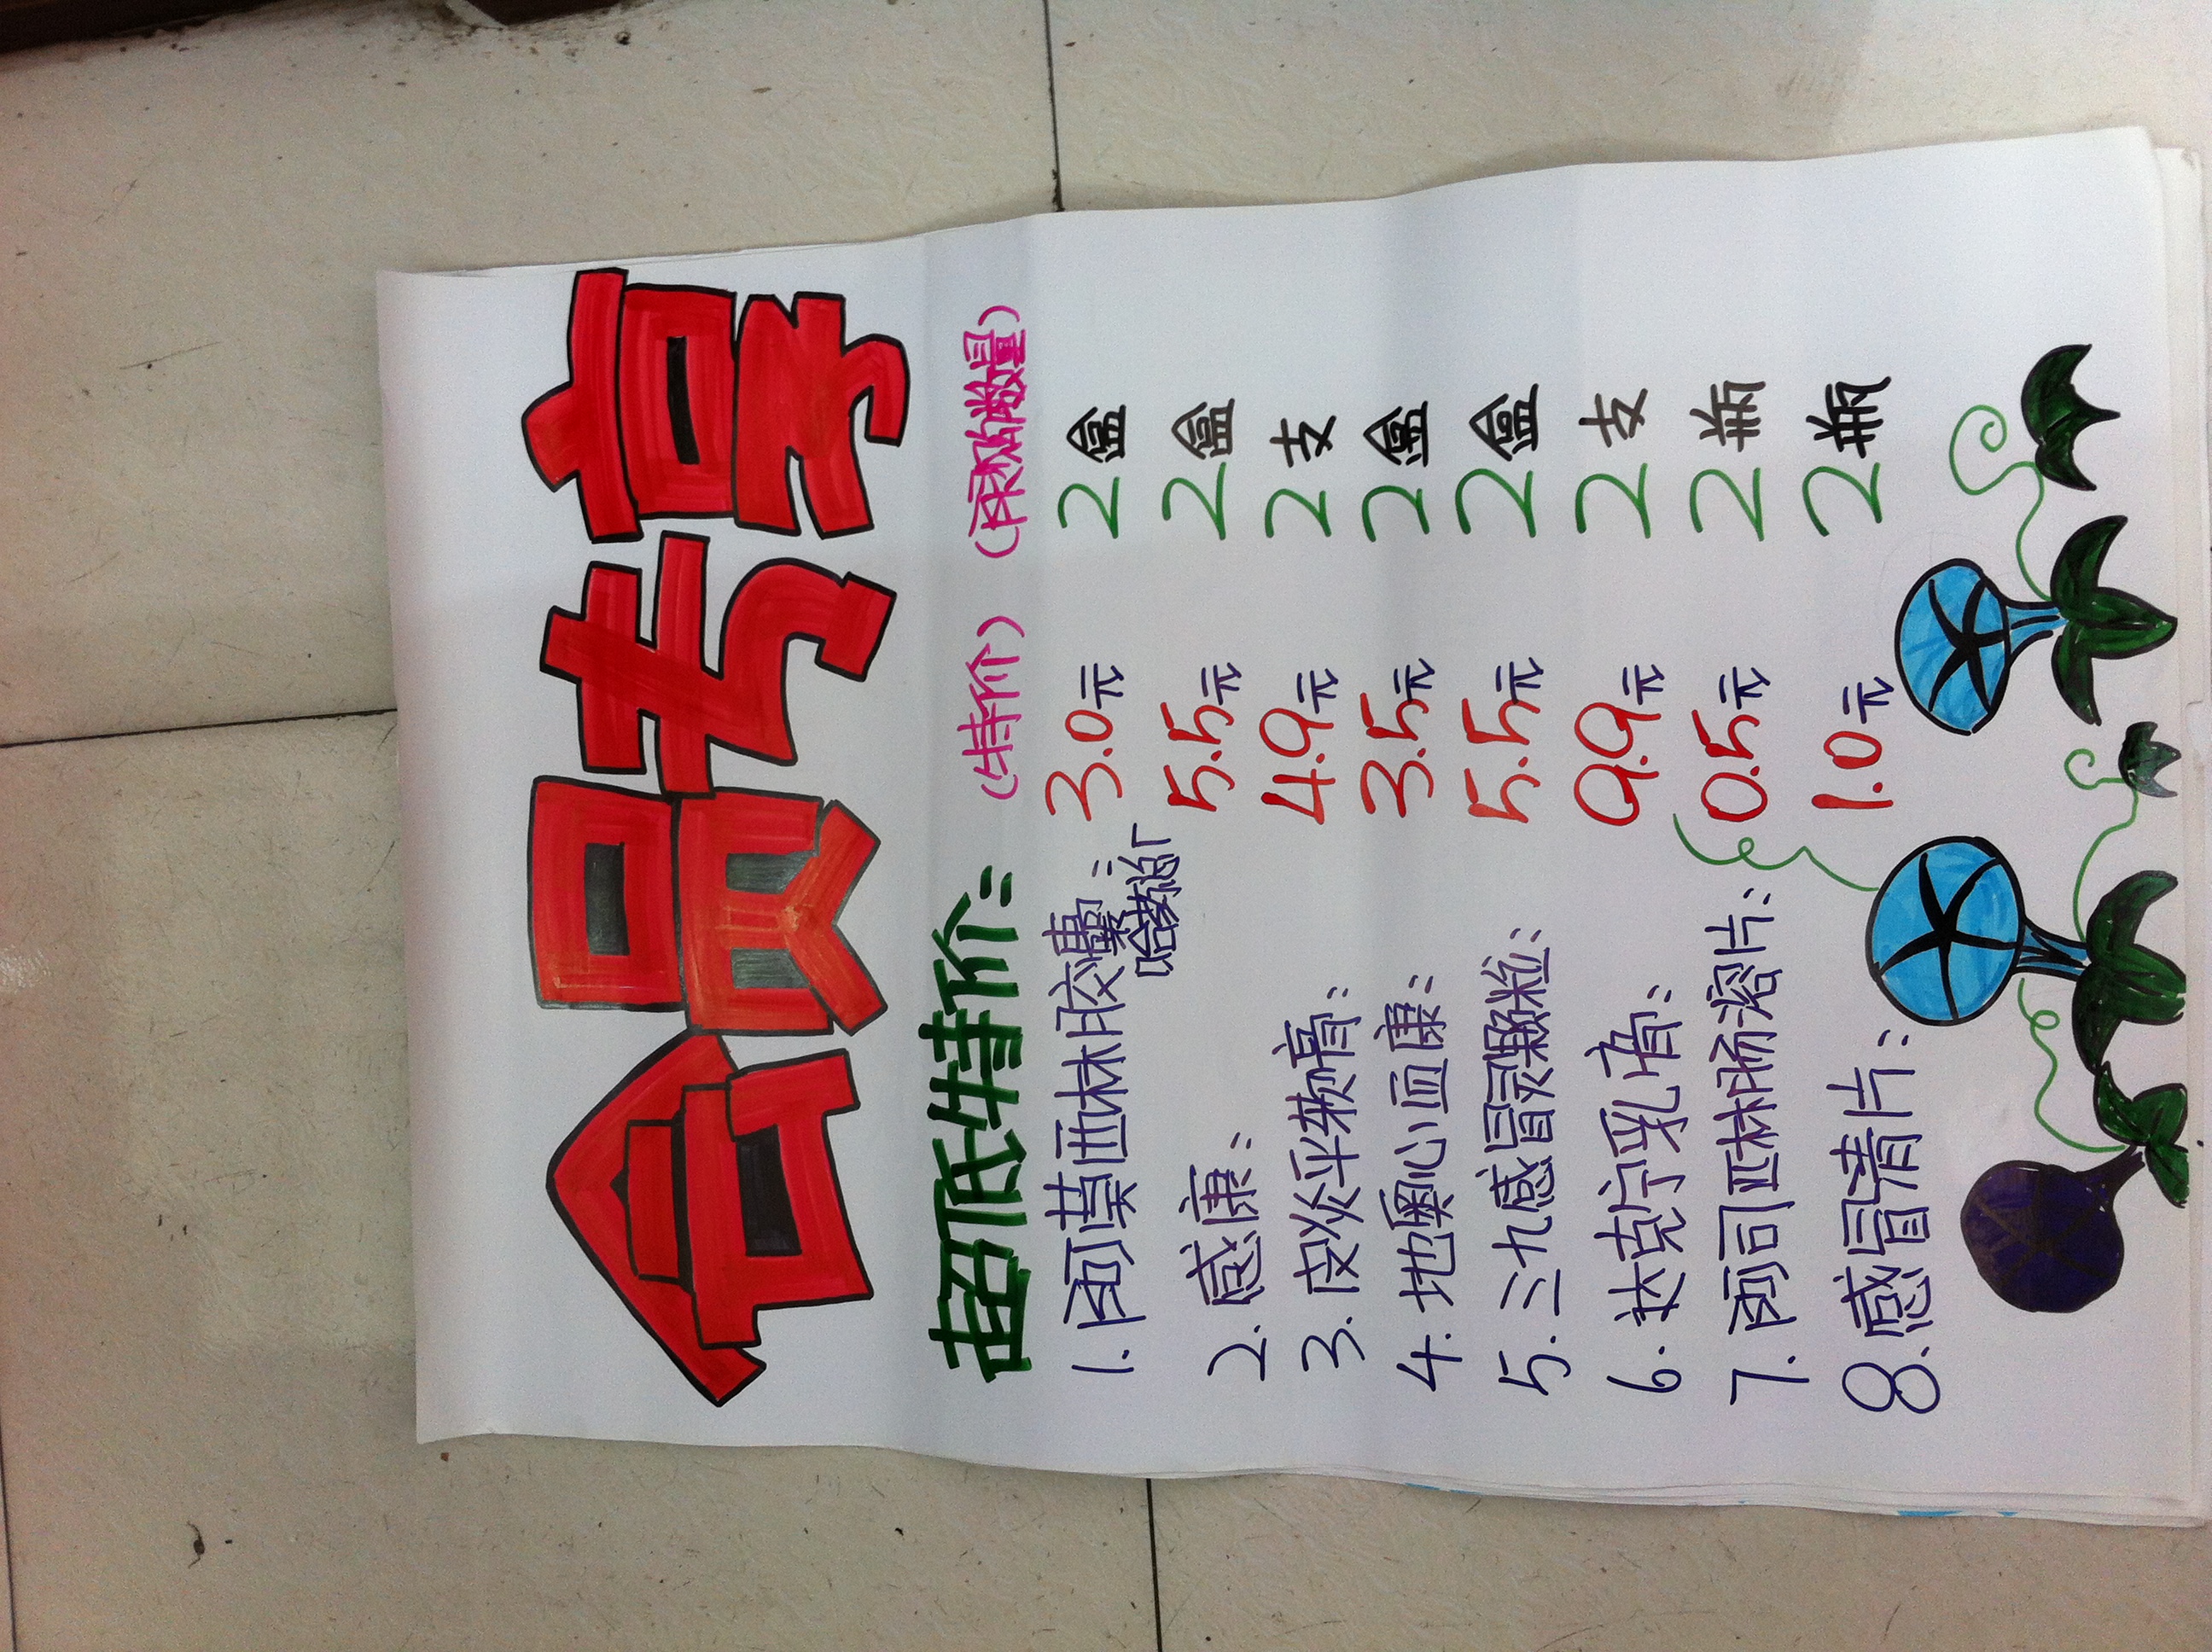 会员专享
超低特价: (特价) (限购数量)
1. 阿莫西林胶囊: 3.0元 2盒
哈药总厂
2. 感康: 5.5元 2盒
3. 皮炎平软膏: 4.9元 2支
4. 地奥心血康: 3.5元 2盒
5. 三九感冒灵颗粒: 5.5元 2盒
6. 达克宁乳膏: 9.9元 2支
7. 阿司匹林肠溶片: 0.5元 2瓶
8. 感冒清片: 1.0元 2瓶